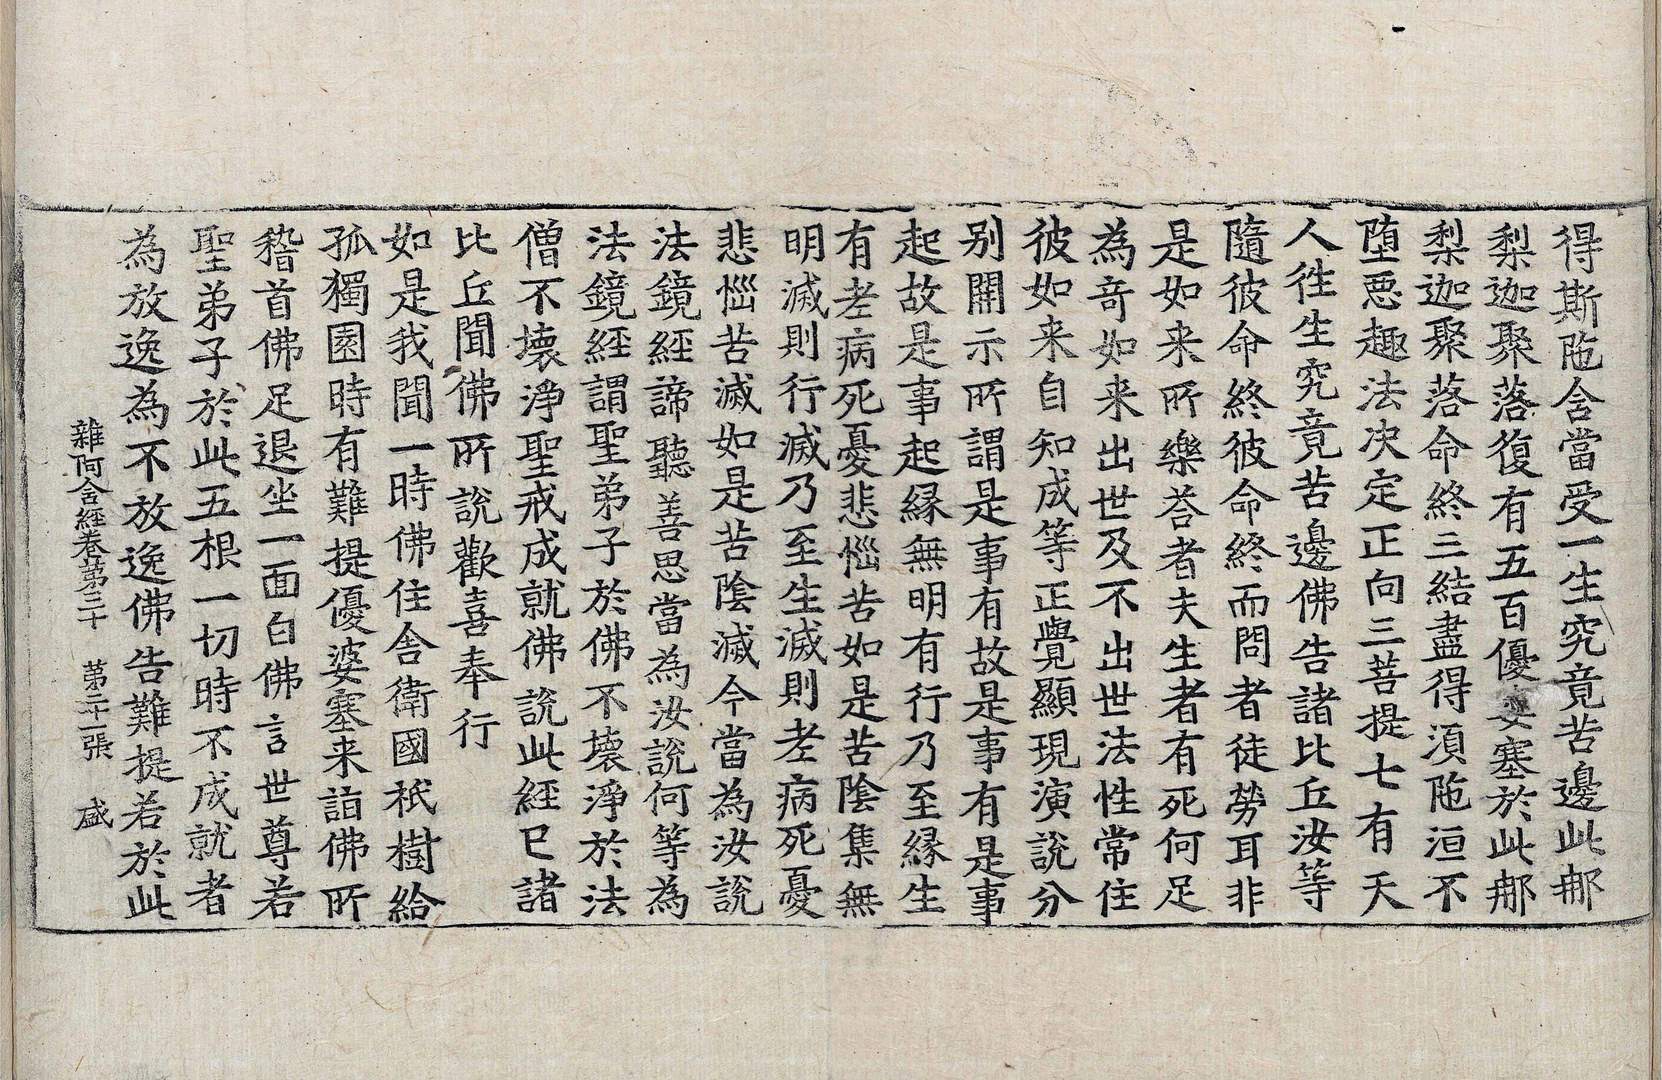 得斯陁含當受一生究竟苦邊此那
梨迦聚落復有五百優婆塞於此那
梨迦聚落命終三結盡得湏陁洹不
堕惡趣法决定正向三菩提七有天
人往生究竟苦邊佛告諸比丘汝等
隨彼命終彼命終而問者徒勞耳非
是如来所樂荅者夫生者有死何足
為奇如来出世及不出世法性常住
彼如来自知成等正覺顯現演說分
别開示所謂是事有故是事有是事
起故是事起緣無明有行乃至緣生
有老病死憂悲惱苦如是苦陰集無
明滅則行滅乃至生滅則老病死憂
悲惱苦滅如是苦陰滅今當為汝說
法鏡經諦聽善思當為汝說何等為
法鏡經謂聖弟子於佛不壞淨於法
僧不壞淨聖戒成就佛說此經已諸
比丘聞佛所說歡喜奉行
如是我聞一時佛住舍衛國祇樹給
孤獨園時有難提優婆塞来詣佛所
稽首佛足退坐一面白佛言世尊若
聖弟子於此五根一切時不成就者
為放逸為不放逸佛告難提若於此
雜阿含經卷第三十 第二十一張 盛